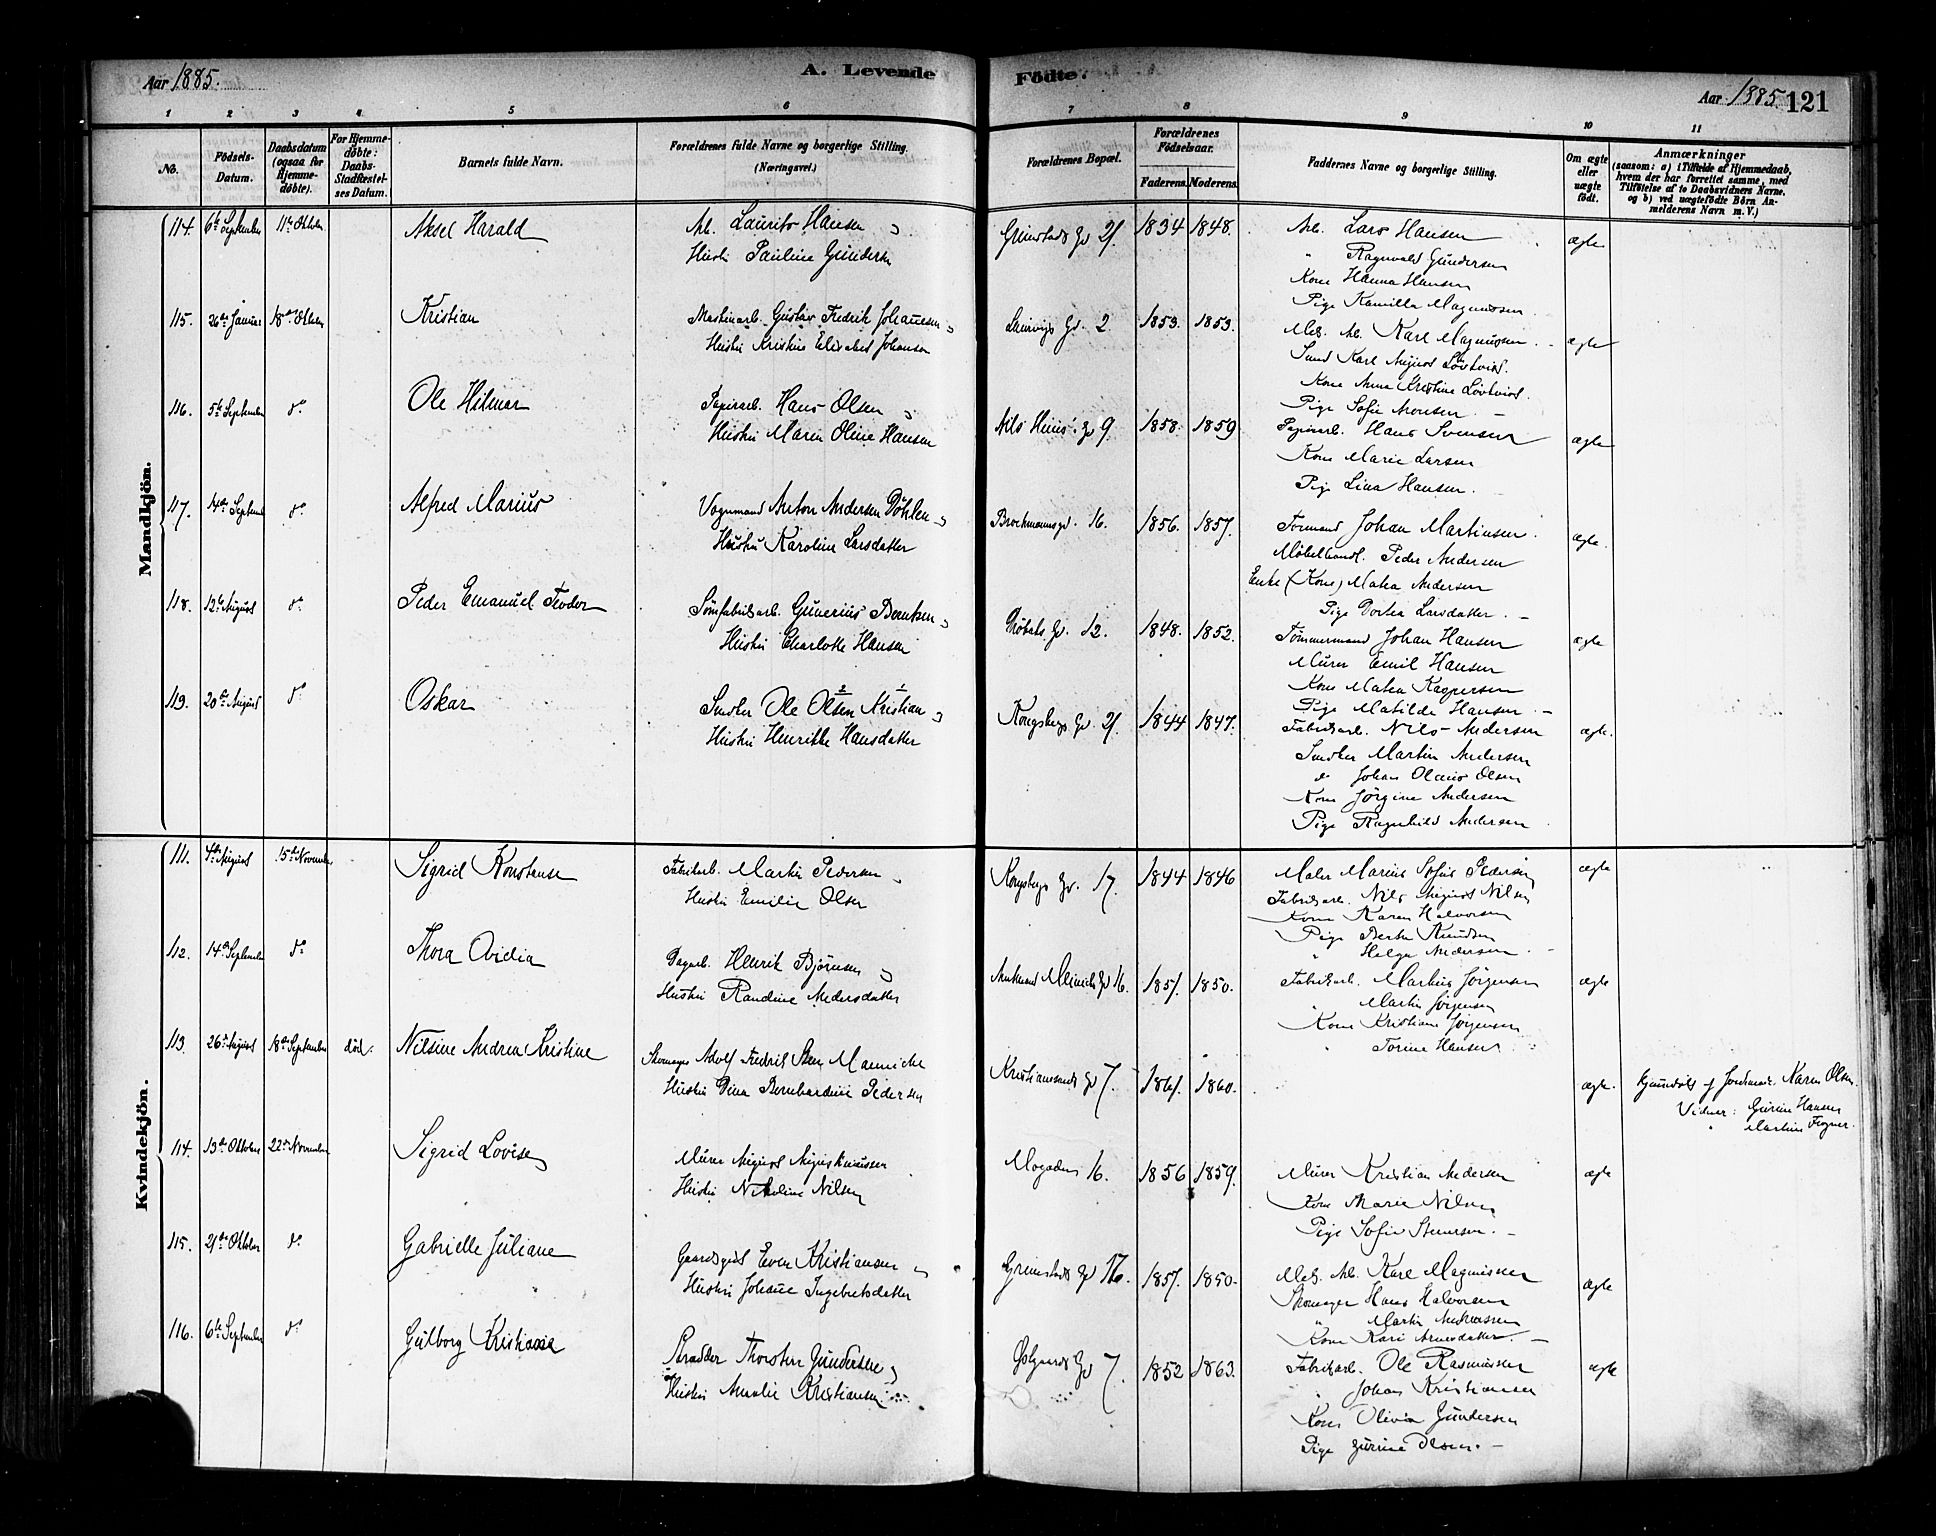 Aar 1885.
A. Levende Födte.
Aar 1885. 121
1 2 3 4 5 6 7 8 9 10 11
No.
Födsels-Datum.
Daabsdatum (ogsaa for Hjemme-döbte).
For Hjemme-döbte: Daabs-Stadfæstelses Datum.
Barnets fulde Navn.
Forældrenes fulde Navne og borgerlige Stilling. (Næringsvei.)
Forældrenes Bopæl.
Forældrenes Födselsaar.
Faderens. Moderens.
Faddernes Navne og borgerlige Stilling.
Om ægte eller uægte födt.
Anmærkninger
(saasom: a) i Tilfælde af Hjemmedaab, hvem der har forrettet samme, med Tilföielse af to Daabsvidners Navne, og b) ved uægtefödte Börn Anmelderens Navn m. V.)
Mandkjön.
114. 6te September 11te Oktober Aksel Harald Arb. Laurits Hansen Grimstads Gd 21. 1834 1848. Arb. Lars Hansen ægte
Hustru Pauline Gundersen " Ragnvald Gundersen
Kone Hanna Hansen
Pige Kamilla Magnussen
115. 26de Januar 18de Oktober Kristian Maskinarb. Gustav Fredrik Johannesen Laurvigs Gd. 2. 1853. 1853. Mek. Arb. Karl Magnussen ægte
Hustru Kristine Elisabet Johansen Karl August
Kone Anna Kristine
Pige Sofie
116. 5te September do Ole Hilmar Papirarb. Hans Olsen Gd 9. 1858. 1859 Papirarb. Hans Svensen ægte
Hustru Maren Oline Hansen Kone Marie Larsen
Pige Lina Hansen.
117. 14de September do Alfred Marius Vognmand Anton Andersen Döhlen Brochmannsgd. 16. 1856. 1857. Formand Johan Martinsen. ægte.
Hustru Karoline Larsdatter Möbelhandl. Peder Andersen
Enke (Kone) Mathea Andersen
Pige Dortea Larsdatter.
118. 12te August do Peder Emanuel Teodor Sömfabrikarb. Gunerius Berntsen Gd. 12. 1848. 1852. Tömmermand Johan Hansen ægte
Hustru Charlotte Hansen Murer Emil Hansen
Kone Mathea Kaspersen
Pige Matilde Hansen
119. 20de August do Oskar Snedker Ole Olsen Kristian Kongsbergs Gd 21. 1844 1847. Fabrikarb. Nils Andersen ægte.
Hustru Henrikke Hansdatter Snedker Martin Andersen
do Johan Olaus Olsen
Kone Jörgine Andersen
Pige Ragnhild Andersen
Kvindekjön.
111. 4de August 15de November Sigrid Konstanse Fabrikarb. Martin Pedersen Kongsbergs Gd. 17. 1844 1846 Maler Marius Sofus Pedersen ægte
Hustru Emilie Olsen Fabrikarb. Nils August Nilsen
Kone Karen Halvorsen
Pige Berte Knudsen
" Helga Andersen
112. 14de September do Thora Ovidia Dagarb. Henrik Björnsen Gd 16. 1851. 1850. Fabrikarb. Martius Jörgensen ægte
Hustru Randine Andersdatter Martin Jörgensen
Kone Kristiane Jörgensen
" Torine Hansen
113. 26de August 18de September död. Nilsine Andrea Kristine Skomager Adolf Fredrik Kristiansands Gd 7. 1861. 1860. ægte. hjemdöbt af Jordmoder Karen Olsen.
Hustru Dina Bernhardine Pedersen Vidner: Gurine Hansen
" Martine
114. 13de Oktober 22de November Sigrid Lovise Murer August Mogaden 16. 1856 1859. Murer Kristian Andersen ægte
Hustru Nikoline Nilsen Kone Marie Nilsen
Pige Sofie
115. 21de Oktober do Gabrielle Juliane Gaardsgut Even Kristiansen Grimstads Gd 16. 1857. 1850. Mek. Arb. Karl Magnussen ægte
Hustru Johanne Ingebretsdatter Skomager Hans Halvorsen
" Martin Andreassen
Kone Kari
116. 6te September do Gulborg Kristianse Skrædder Thorsten Gundersen Östgaards Gd 7. 1852 1863. Fabrikarb. Ole Rasmussen ægte
Hustru Amalie Kristiansen " Johan Kristiansen
Kone Olivia Gundersen
Pige Gurine Olsen.